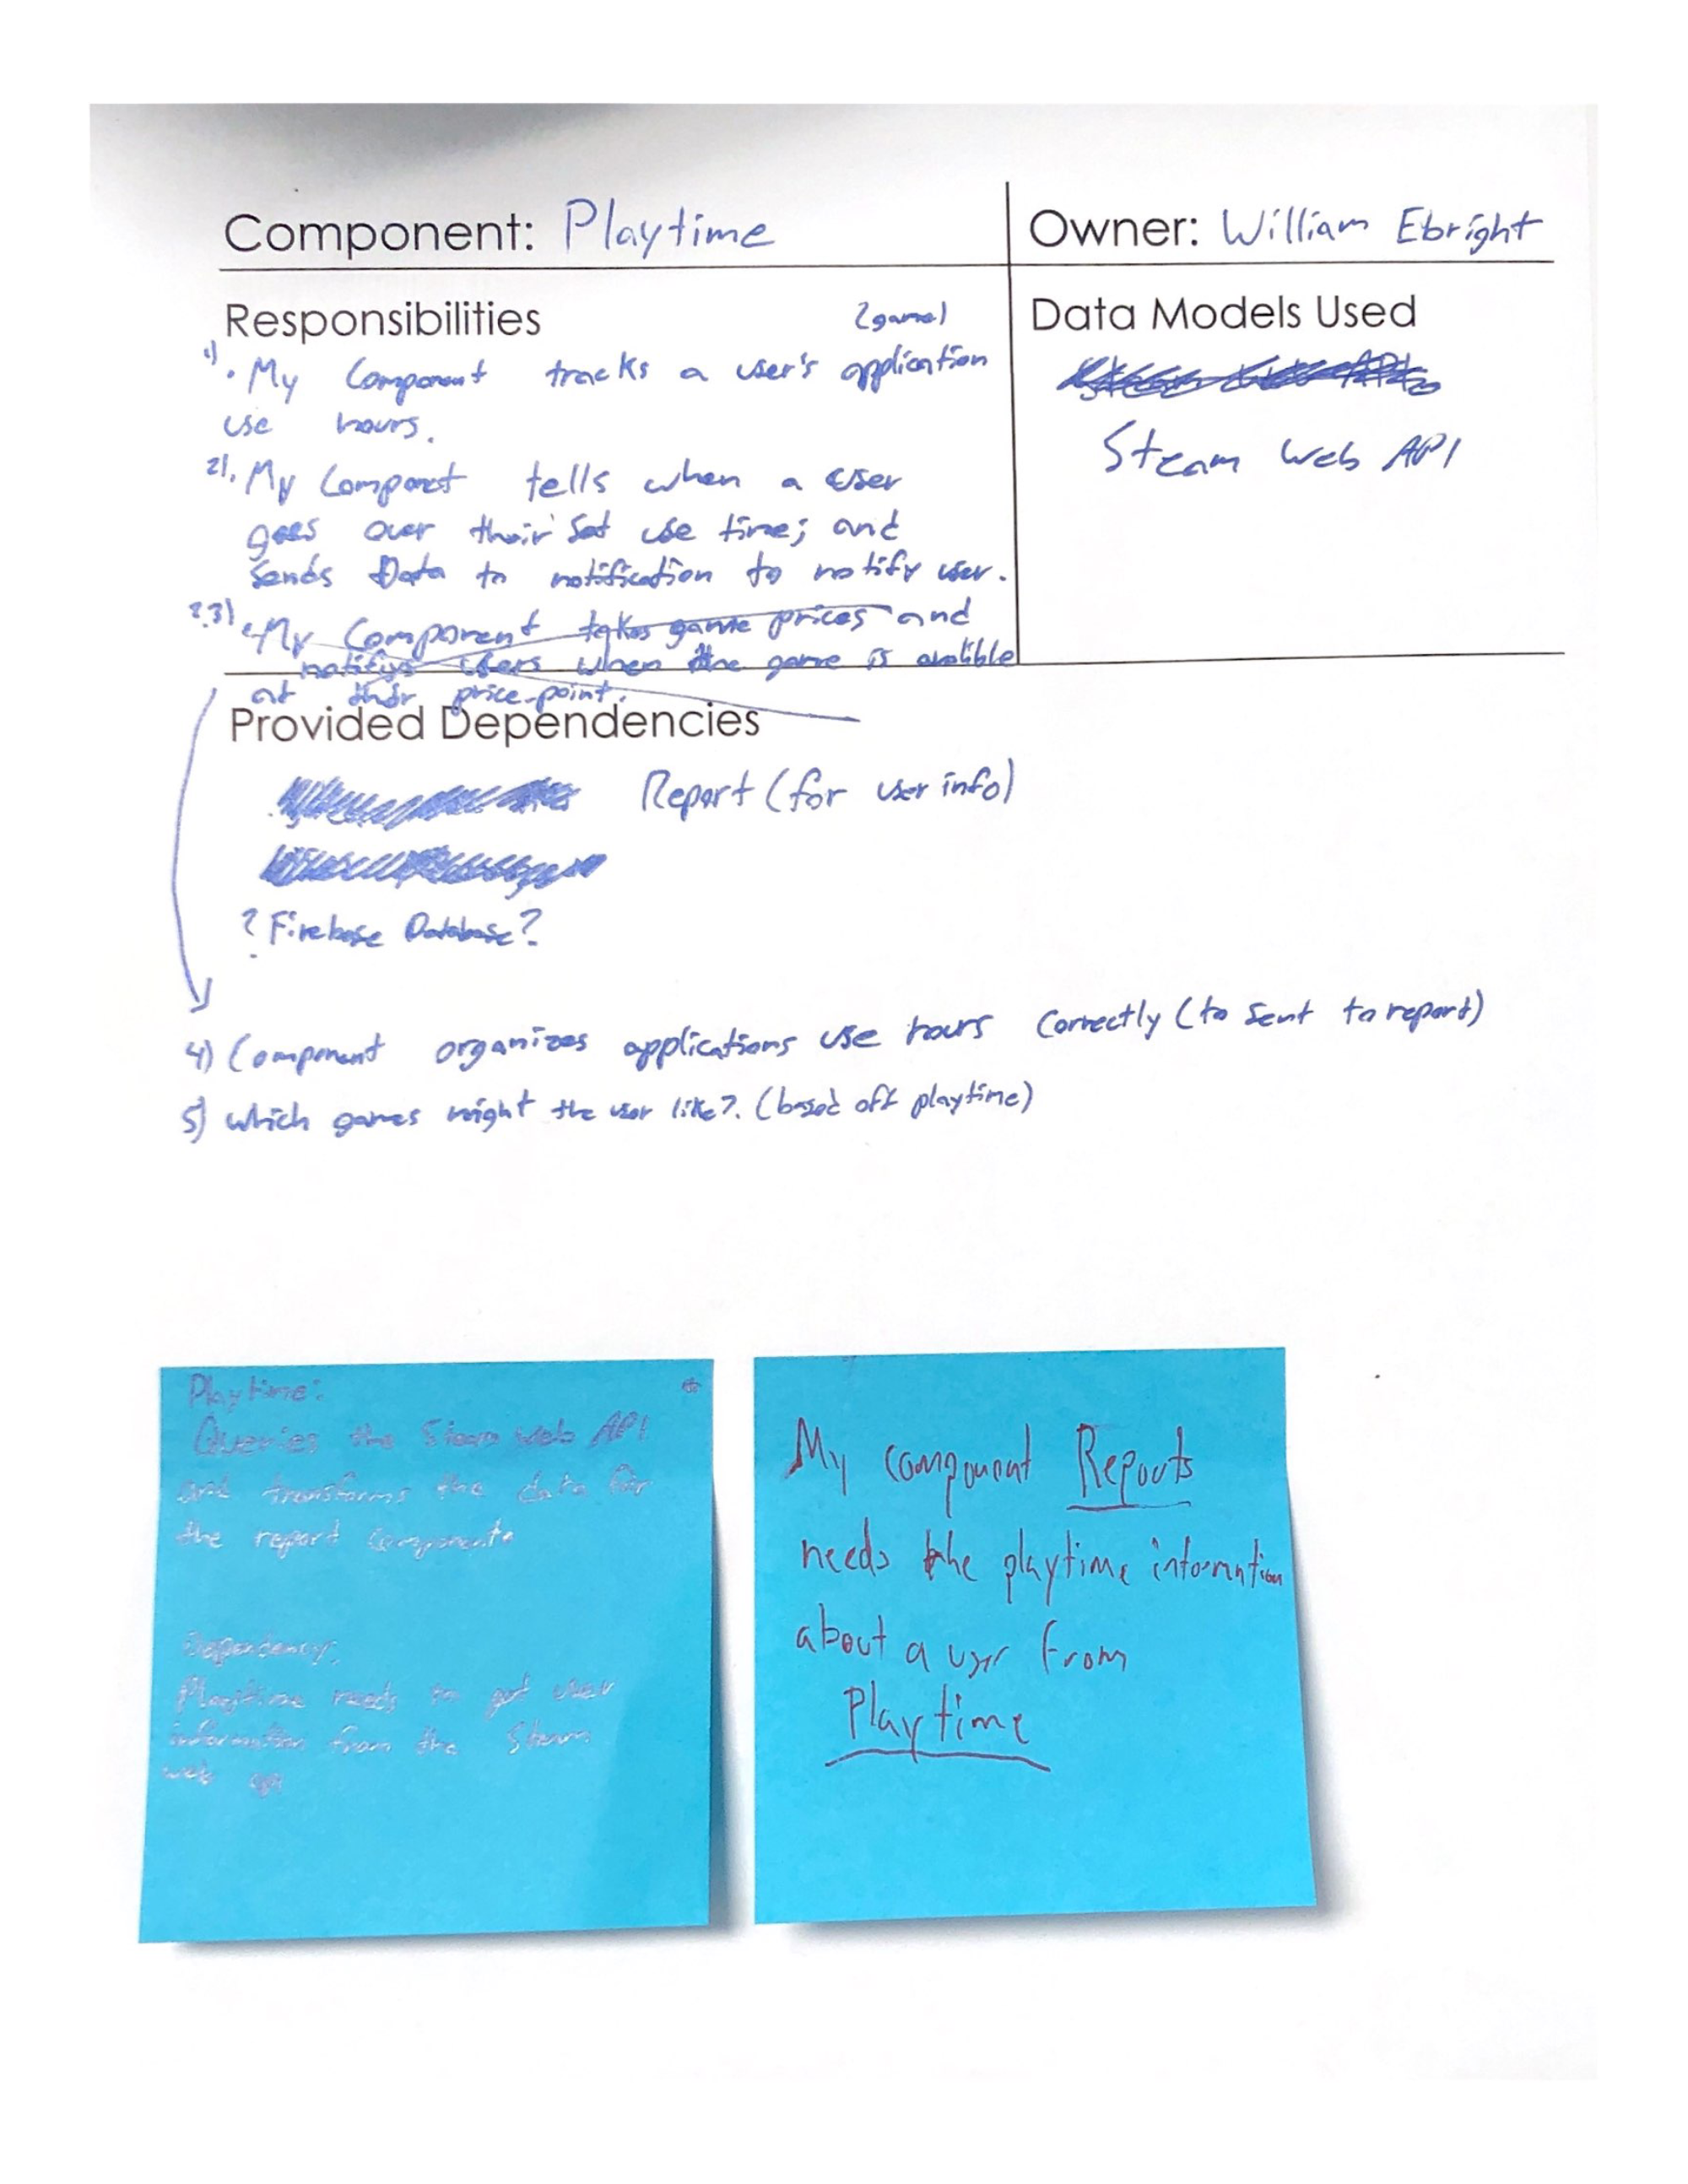 Component: Playtime
Owner: William Ebright
Responsibilities
(game)
1). My Component tracks a user's application
use hours.
2). My Component tells when a user
goes over their set use time; and
sends Data to notification to notify user.
?3). My Component takes game prices and
notifys users when the game is avalible
at their price-point.
Data Models Used
Steam Web API
Provided Dependencies
Report (for user info)
? Firebase Database?
4) Component organizes applications use hours correctly (to sent to report)
5) which games might the user like?. (based off playtime)
Playtime:
Queries the Steam Web API
and transforms the data for
the report components
Dependency:
Playtime needs to get user
information from the Steam
web api
My component Reports
needs the playtime information
about a user from
Playtime